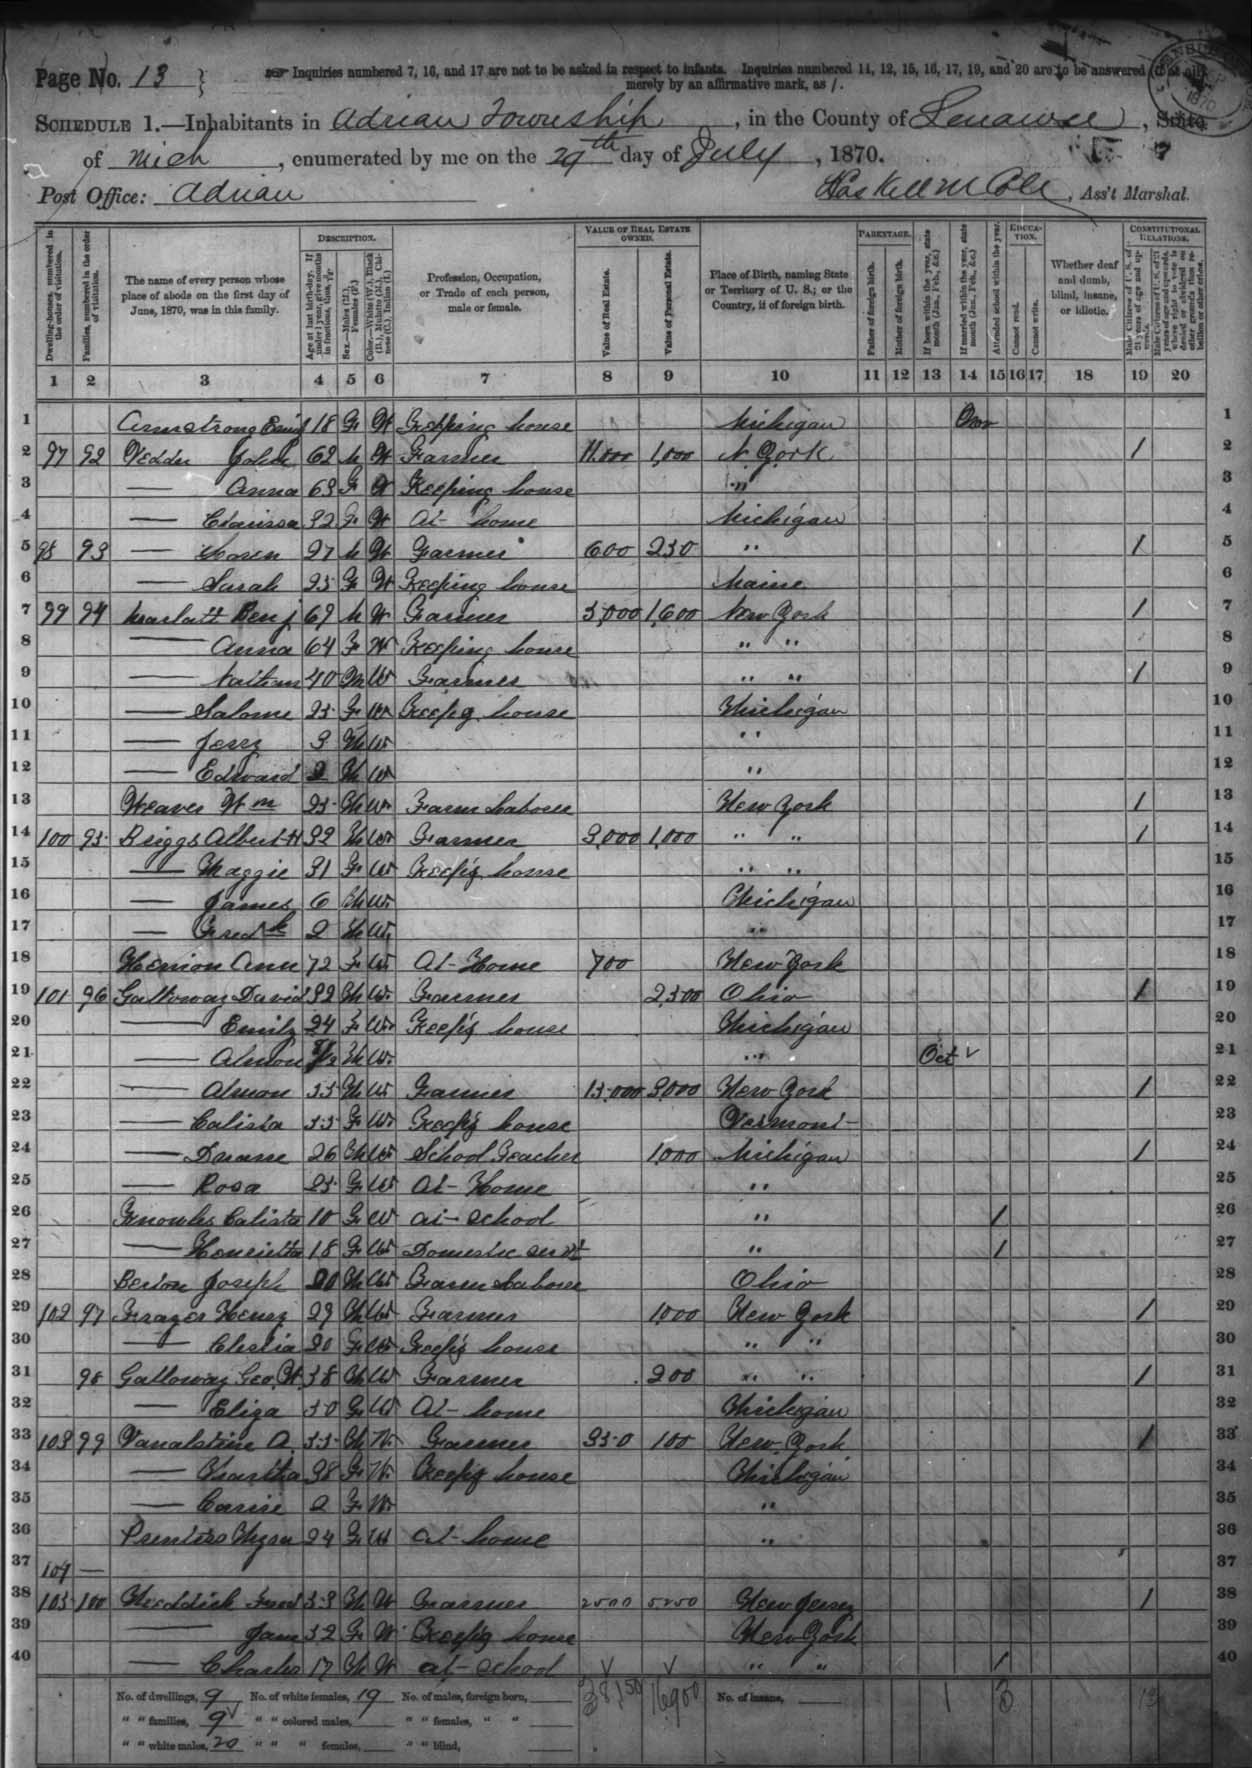 Page No. 13
Inquiries numbered 7, 16, and 17 are not to be asked in respect to infants. Inquiries numbered 11, 12, 15, 16, 17, 19, and 20 are to be answered
merely by an affirmative mark, as /.
SCHEDULE 1.—Inhabitants in Adrian Township, in the County of Lenawee, State
of Mich, enumerated by me on the 29th day of July, 1870.
Post Office: Adrian
Haskell M Cole, Ass't Marshal.
Dwelling-houses, numbered in the order of visitation.
Families, numbered in the order of visitation.
The name of every person whose place of abode on the first day of June, 1870, was in this family.
DESCRIPTION.
Age at last birth-day. If under 1 year, give months in fractions, thus,
Sex.—Males (M.), Females (F.)
Color.—White (W.), Black (B.), Mulatto (M.), Chinese (C.), Indian (I.)
Profession, Occupation, or Trade of each person, male or female.
VALUE OF REAL ESTATE OWNED.
Value of Real Estate.
Value of Personal Estate.
Place of Birth, naming State or Territory of U. S.; or the Country, if of foreign birth.
PARENTAGE.
Father of foreign birth.
Mother of foreign birth.
If born within the year, state month (Jan., Feb., &c.)
If married within the year, state month (Jan., Feb., &c.)
Attended school within the year.
EDUCATION.
Cannot read.
Cannot write.
Whether deaf and dumb, blind, insane, or idiotic.
CONSTITUTIONAL RELATIONS.
Male Citizens of U. S. of 21 years of age and upwards.
Male Citizens of U. S. of 21 years of age and upwards, whose right to vote is denied or abridged on other grounds than rebellion or other crime.
1 2 3 4 5 6 7 8 9 10 11 12 13 14 15 16 17 18 19 20
1 Armstrong 18 F W Keeping house Michigan 1
2 97 92 Vedder John 62 M W Farmer 11,000 1,000 N. York / 2
3 — Anna 63 F W Keeping house " 3
4 — Clarissa 32 F W At home Michigan 4
5 98 93 — 27 M W Farmer 600 250 " / 5
6 — Sarah 25 F W Keeping house Maine 6
7 99 94 Marlatt Benj 69 M W Farmer 5,000 1,600 New York / 7
8 — Anna 64 F W Keeping house " " 8
9 — Nathan 40 M W Farmer " " / 9
10 — Salome 25 F W Keep'g house Michigan 10
11 — Jerry 3 M W " 11
12 — Edward 2 M W " 12
13 Weaver Wm 25 M W Farm Laborer New York / 13
14 100 95 Briggs Albert H 32 M W Farmer 3,000 1,000 " " / 14
15 — Maggie 31 F W Keep'g house " " 15
16 — James 6 M W Michigan 16
17 — Fredk 2 M W " 17
18 Ann 72 F W At Home 700 New York 18
19 101 96 Galloway David 32 M W Farmer 2,500 Ohio / 19
20 — Emily 24 F W Keep'g house Michigan 20
21 — Almon M W " Oct 21
22 — Almon 55 M W Farmer 15,000 3,000 New York / 22
23 — Calista 55 F W Keep'g house Vermont 23
24 — Duane 26 M W School Teacher 1,000 Michigan / 24
25 — Rosa 25 F W At Home " 25
26 Knowles Calista 10 F W at school " / 26
27 — Henrietta 18 F W Domestic serv't " / 27
28 Joseph 20 M W Farm Laborer Ohio 28
29 102 97 Frazer Henry 29 M W Farmer 1000 New York / 29
30 — Celestia 20 F W Keep'g house " " 30
31 98 Galloway Geo. W. 58 M W Farmer 200 " " / 31
32 — Eliza 50 F W At home Michigan 32
33 103 99 Vanalstine A. 55 M W. Farmer 350 100 New York / 33
34 — Martha 38 F W. Keep'g house Michigan 34
35 — Carrie 2 F W. " 35
36 Prentiss 24 F W at home " 36
37 104 — 37
38 105 100 53 M W Farmer 2500 5250 New Jersey / 38
39 — Jane 52 F W Keep'g house New York 39
40 — Charles 17 M W at school " " / 40
No. of dwellings, 9 No. of white females, 19 No. of males, foreign born, No. of insane,
" " families, 9 " " colored males, " " females, " "
" " white males, 20 " " " females, " " blind,
38,150 16,900 1 3